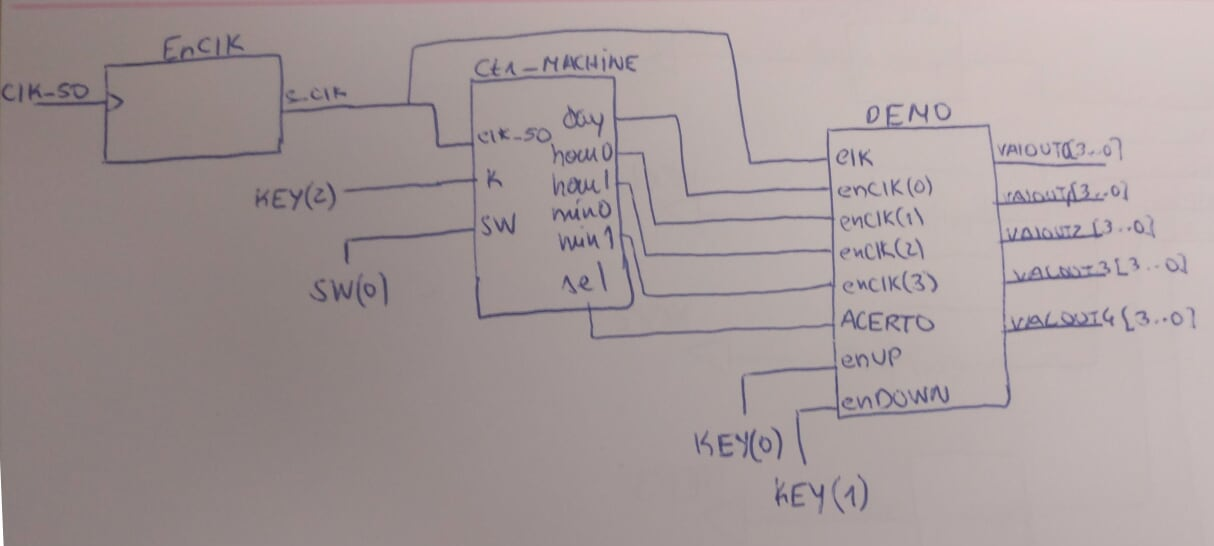 EnClK
ClK_50
s_clk
Ctr_MACHINE
clk_50
K
SW
day
hour0
hour1
min0
min1
sel
KEY(2)
SW(0)
DEMO
clK
enClK(0)
enClK(1)
enClK(2)
enClK(3)
ACERTO
enUP
enDOWN
VAlOUT0[3..0]
valOUT1[3..0]
VAlOUT2[3..0]
VALOUT3[3..0]
VALOUT4[3..0]
KEY(0)
KEY(1)